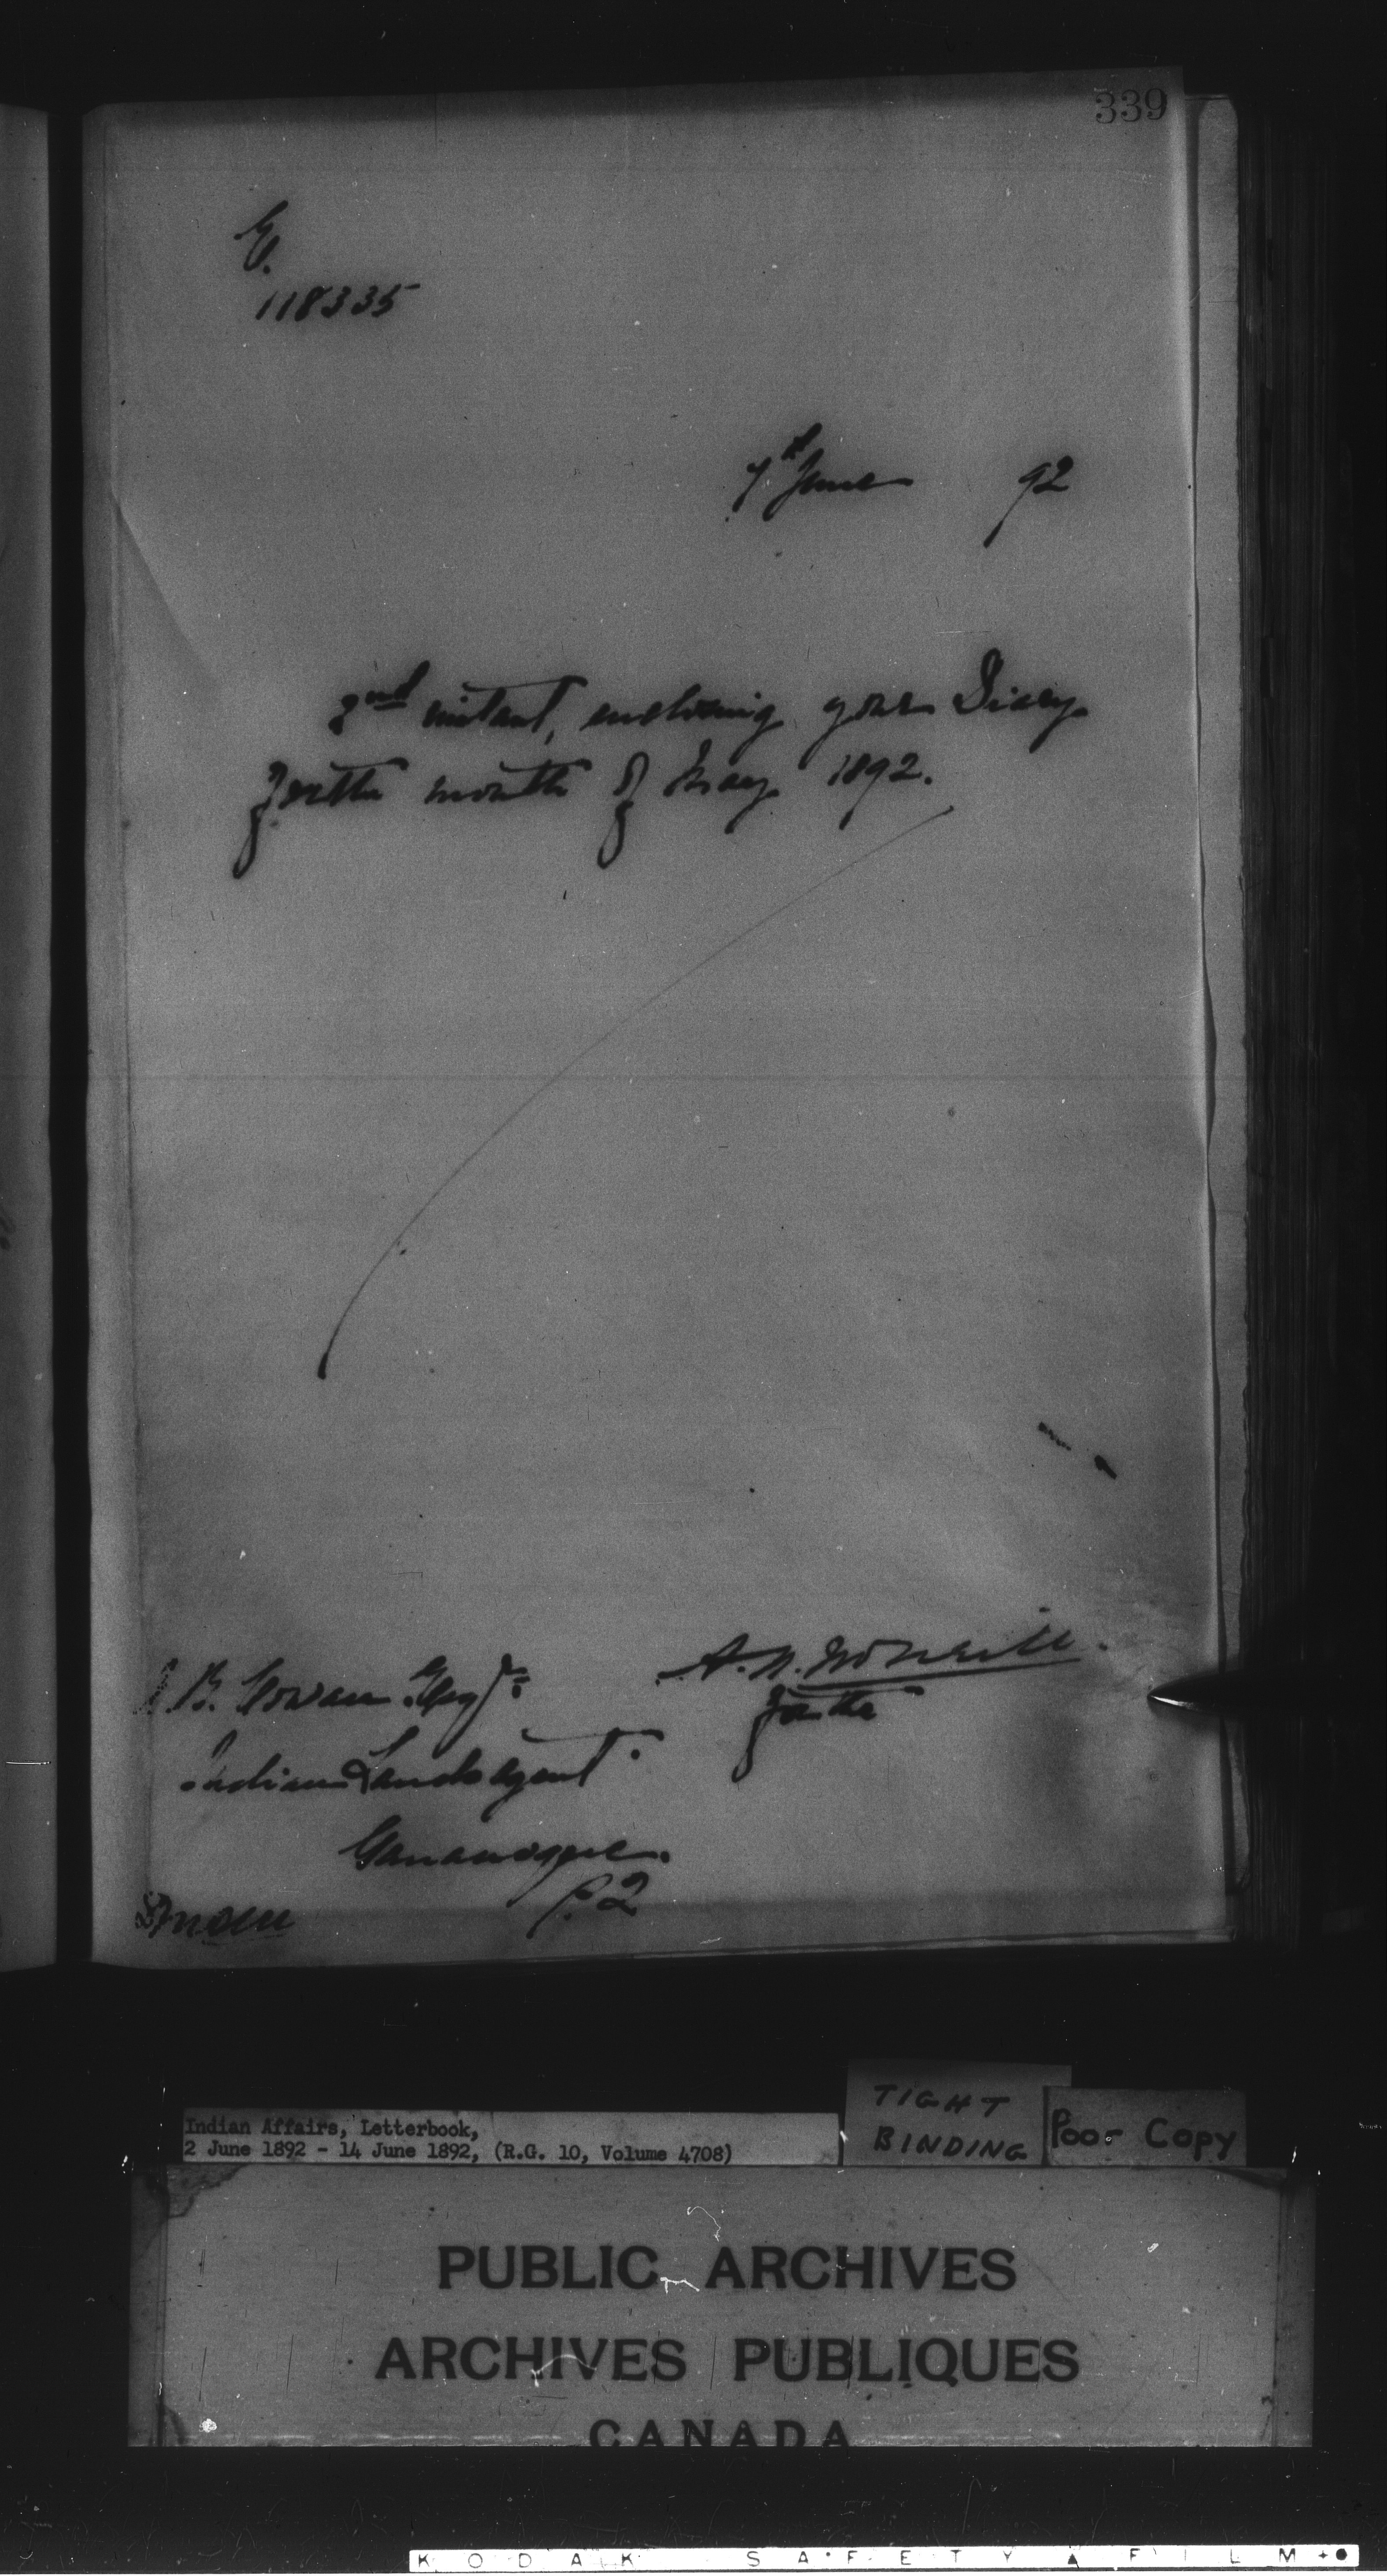 339
E.
118335
7th June 92
2nd instant, enclosing your Diary
for the month of May 1892.
A.N. McNeill.
for the
J.B. Gowan Esqr.
Indian Lands agent.
Gananoque.
P.2
Indian Affairs, Letterbook,
2 June 1892 - 14 June 1892, (R.G. 10, Volume 4708)
TIGHT
BINDING
Poor Copy
PUBLIC ARCHIVES
ARCHIVES PUBLIQUES
CANADA
KODAK SAFETY FILM